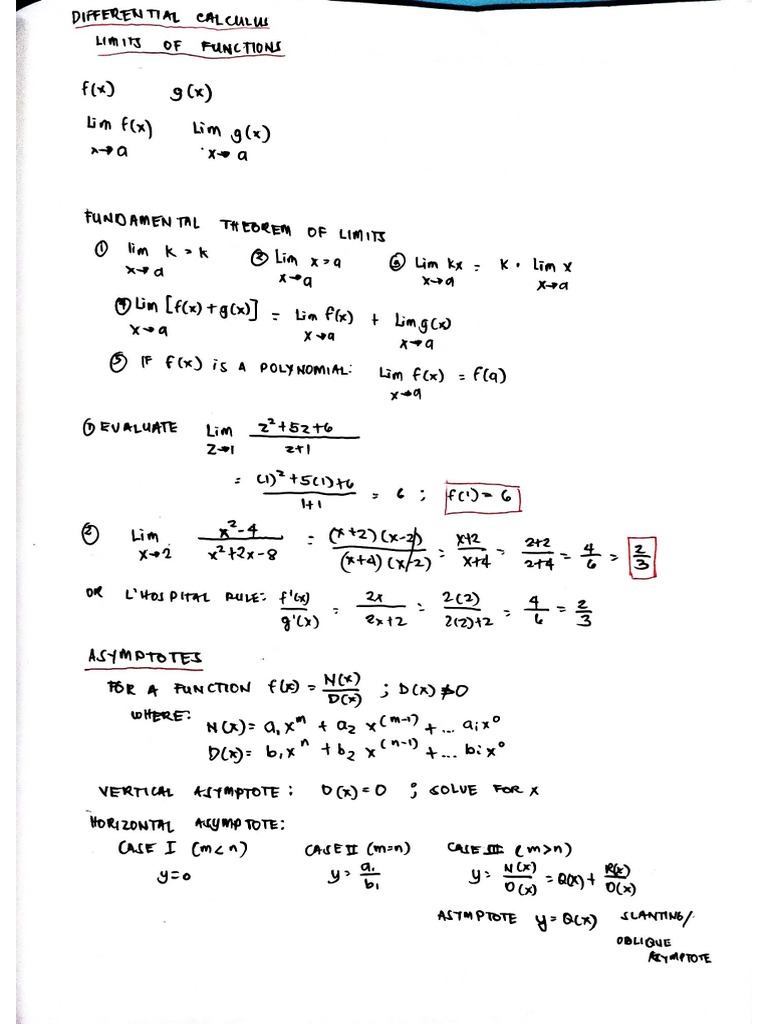 DIFFERENTIAL CALCULUS
LIMITS OF FUNCTIONS
f(x) g(x)
Lim f(x) Lim g(x)
x→a x→a
FUNDAMENTAL THEOREM OF LIMITS
① lim k = k ② Lim x = a ③ Lim kx = k · Lim x
x→a x→a x→a x→a
④ Lim [f(x) + g(x)] = Lim f(x) + Lim g(x)
x→a x→a x→a
⑤ IF f(x) IS A POLYNOMIAL: Lim f(x) = f(a)
x→a
① EVALUATE Lim z²+5z+6
z→1 z+1
= (1)²+5(1)+6 = 6 ; f(1) = 6
1+1
② Lim x²-4 = (x+2)(x-2) = x+2 = 2+2 = 4 = 2
x→2 x²+2x-8 (x+4)(x-2) x+4 2+4 6 3
OR L'HOSPITAL RULE: f'(x) = 2x = 2(2) = 4 = 2
g'(x) 2x+2 2(2)+2 6 3
ASYMPTOTES
FOR A FUNCTION f(x) = N(x) ; D(x) ≠ 0
D(x)
WHERE:
N(x) = a₁x^m + a₂ x^(m-1) + ... aᵢx⁰
D(x) = b₁x^n + b₂ x^(n-1) + ... bᵢx⁰
VERTICAL ASYMPTOTE : D(x) = 0 ; SOLVE FOR x
HORIZONTAL ASYMPTOTE:
CASE I (m<n) CASE II (m=n) CASE III (m>n)
y=0 y= a₁ y= N(x) = Q(x) + R(x)
b₁ D(x) D(x)
ASYMPTOTE y = Q(x) SLANTING/
OBLIQUE
ASYMPTOTE